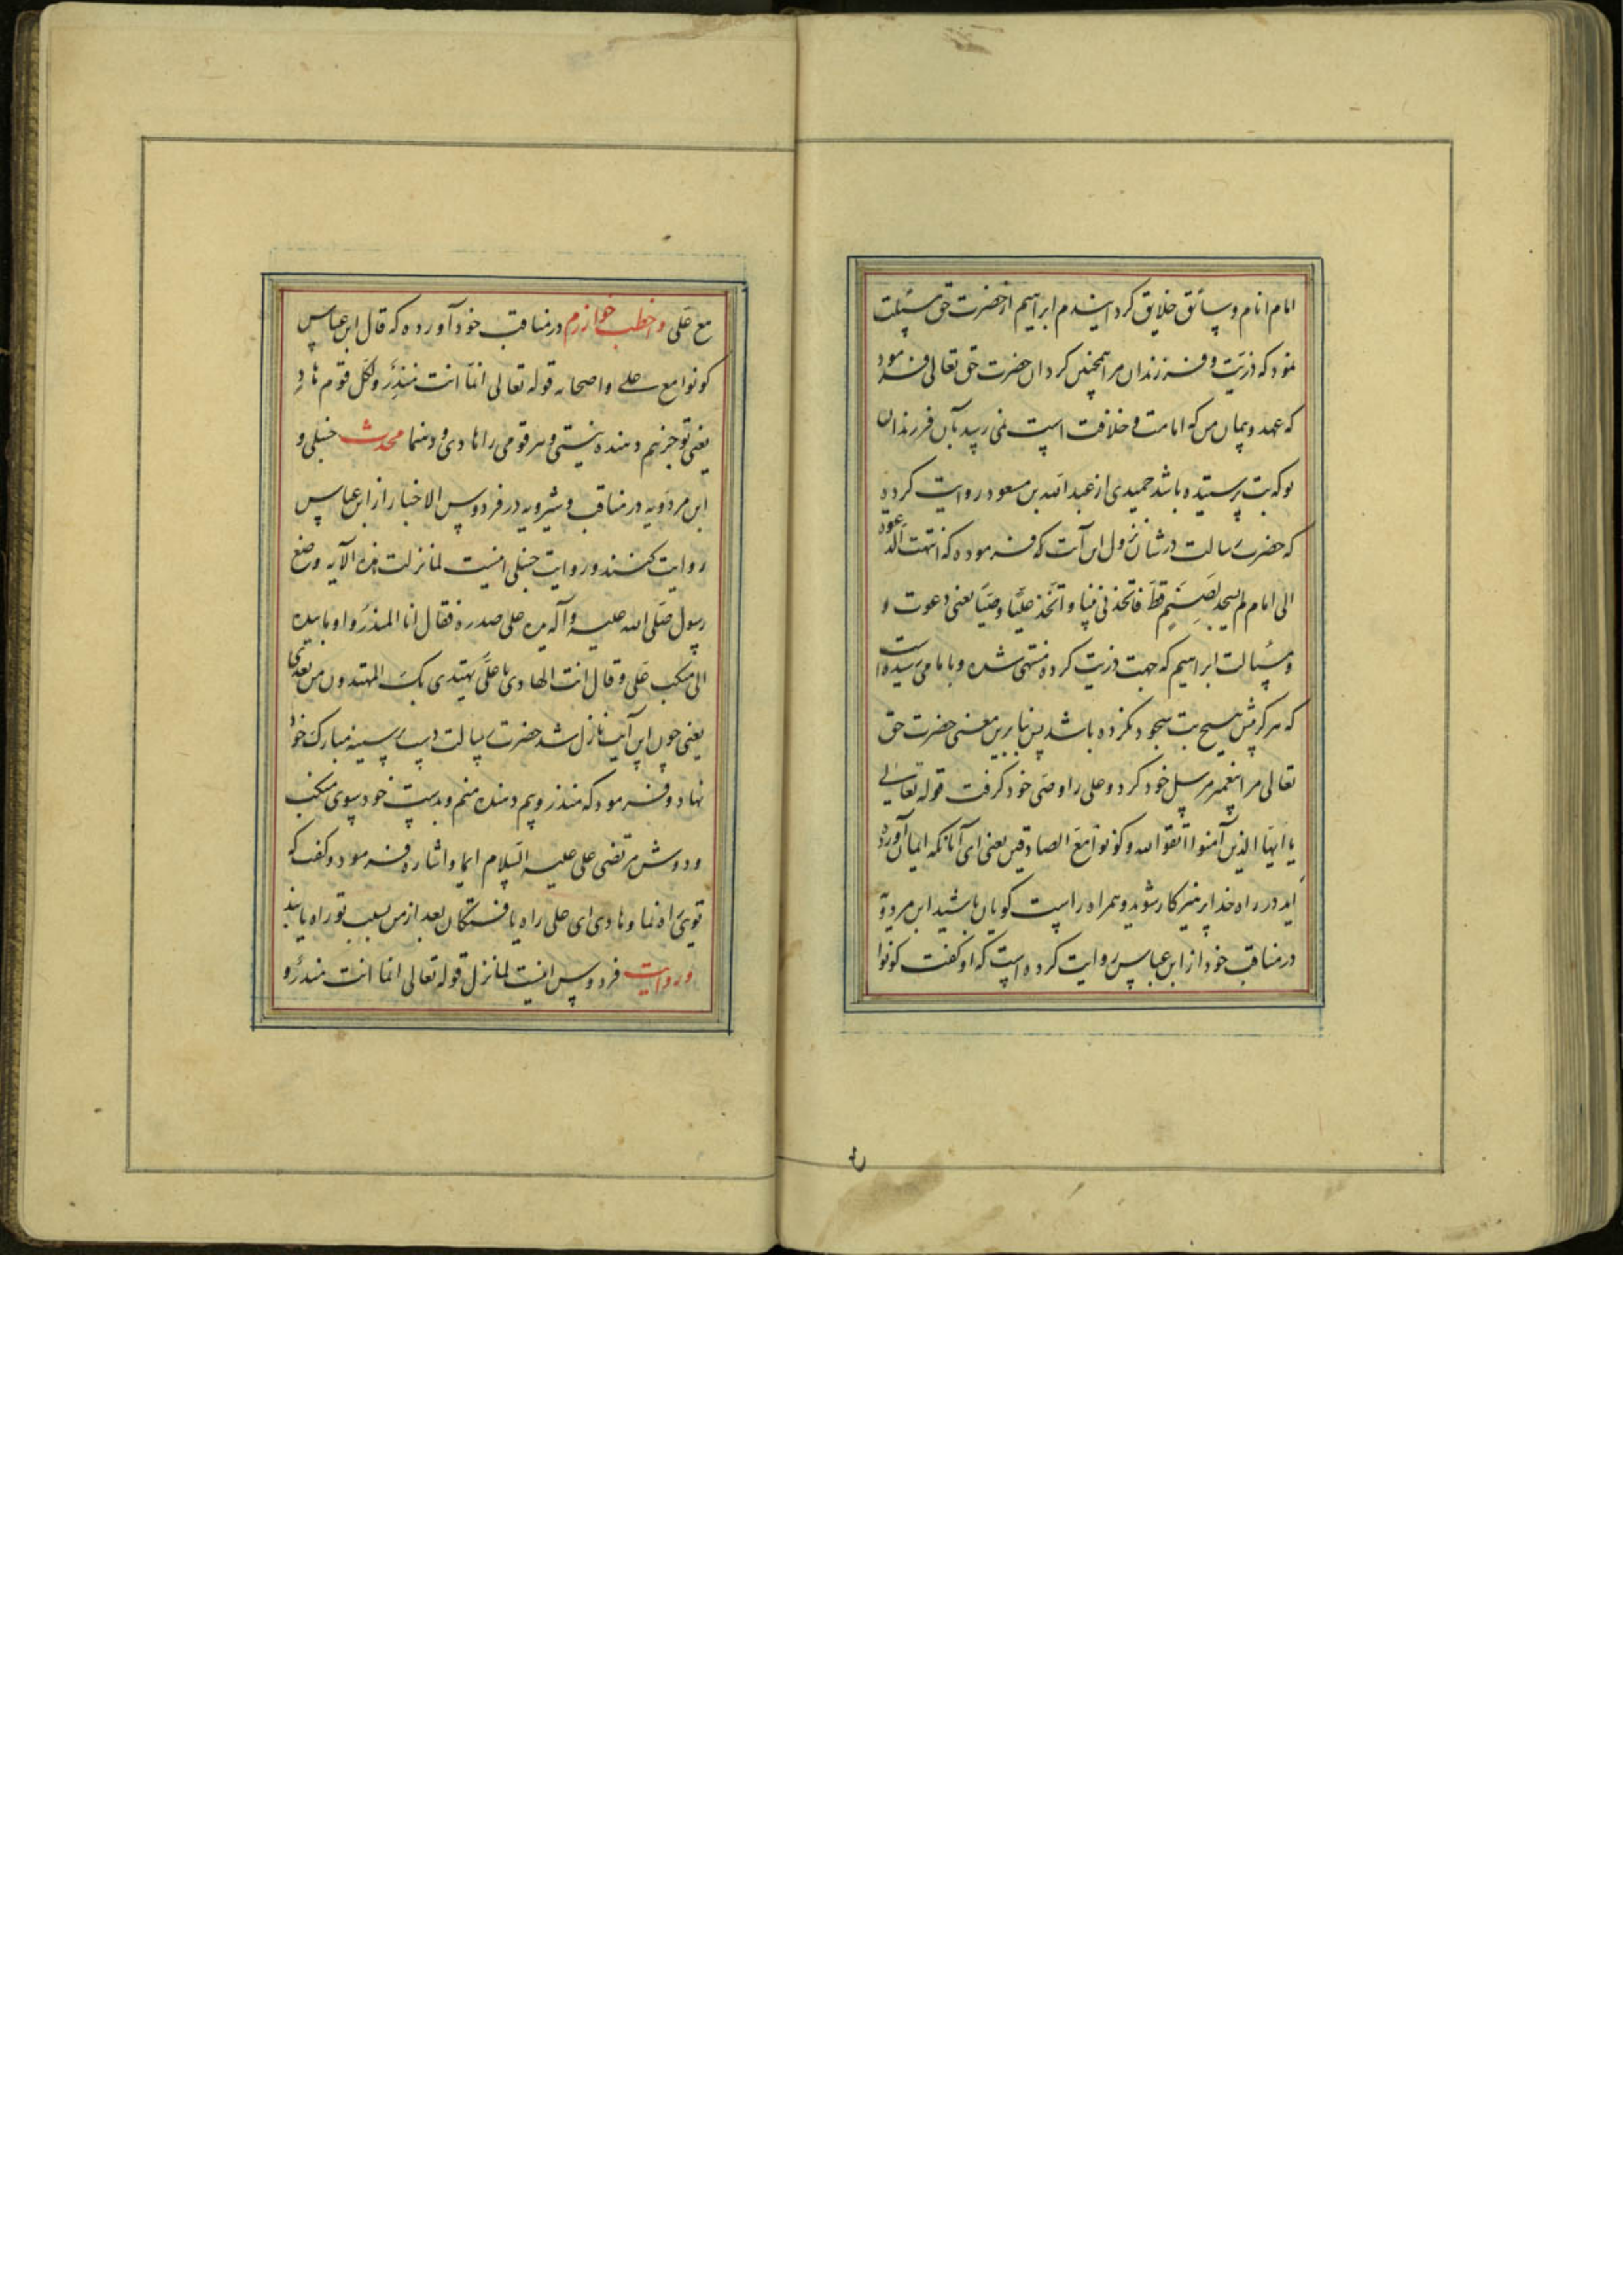 امام انام و سائق خلایق گردانیدم ابراهیم از حضرت حق مسئلت
نمود که ذریت و فرزندان مرا همچنین گردان حضرت حق تعالی فرمود
که عهد و پیمان من که امامت و خلافت است نمی رسد بآن فرزندان
تو که بت پرستیده باشد حمیدی از عبدالله بن مسعود روایت کرده
که حضرت رسالت در شان نزول این آیت که فرموده که انتهت الدعوة
الی امام لم یسجد لصنم قط فاتخذنی نبیا و اتخذ علیا وصیا یعنی دعوت و
و مسالت ابراهیم که جهت ذریت کرده منتهی شده و بامامی رسیده است
که هرگز پیش هیچ بت سجود نکرده باشد پس بنا برین معنی حضرت حق
تعالی مرا پیغمبر مرسل خود کرد و علی را وصی خود گرفت قوله تعالی
یا ایها الذین آمنوا اتقوا الله و کونوا مع الصادقین یعنی ای آنانکه ایمان آورده
اید در راه خدا پرهیزکار شوید و همراه راست گویان باشید ابن مردویه
در مناقب خود از ابن عباس روایت کرده است که او گفت کونوا
مع علی و اخطب خوارزم در مناقب خود آورده که قال ابن عباس
کونوا مع علی و اصحابه قوله تعالی انما انت منذر و لکل قوم هاد
یعنی تو جز بیم دهنده نیستی و هر قومی را هادی و رهنما محدث حنبلی و
ابن مردویه در مناقب و شیرویه در فردوس الاخبار از ابن عباس
روایت کنند و روایت حنبلی اینست لما نزلت هذه الآیه وضع
رسول صلی الله علیه و آله یده علی صدره فقال انا المنذر و اومأ بیده
الی منکب علی و قال انت الهادی یا علی یهتدی بک المهتدون من بعدی
یعنی چون این آیت نازل شد حضرت رسالت دست بر سینه مبارک خود
نهاد و فرمود که منذر و بیم دهنده منم و بدست خود بسوی منکب
و دوش مرتضی علی علیه السلام ایما و اشاره فرمود و گفت که
توی راه نما و هادی ای علی راه یافتگان بعد از من بسبب تو راه یابند
و روایت فردوس اینست لما نزل قوله تعالی انما انت منذر و